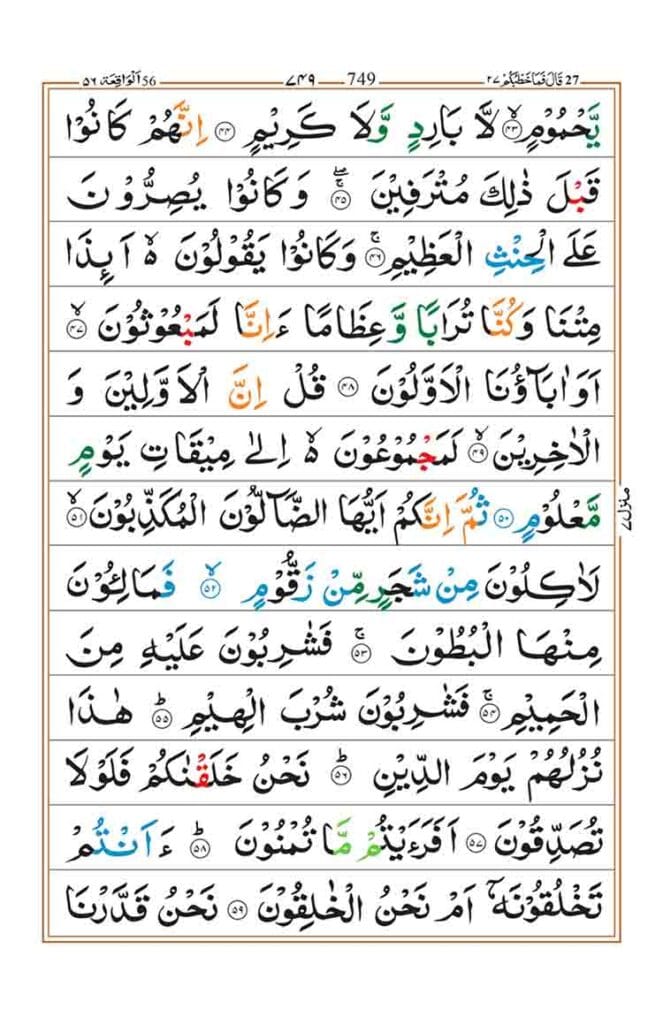 56 اَلْوَاقِعَة ٥٦
749 ٧٤٩
27 قَالَ فَمَا خَطْبُكُمْ ٢٧
يَّحْمُوْمٍ ﴿٤٣﴾ لَّا بَارِدٍ وَّلَا كَرِيْمٍ ﴿٤٤﴾ اِنَّهُمْ كَانُوْا
قَبْلَ ذٰلِكَ مُتْرَفِيْنَ ﴿٤٥﴾ وَكَانُوْا يُصِرُّوْنَ
عَلَى الْحِنْثِ الْعَظِيْمِ ﴿٤٦﴾ وَكَانُوْا يَقُوْلُوْنَ ۙ۬ اَىِٕذَا
مِتْنَا وَكُنَّا تُرَابًا وَّعِظَامًا ءَاِنَّا لَمَبْعُوْثُوْنَ ﴿٤٧﴾
اَوَاٰبَآؤُنَا الْاَوَّلُوْنَ ﴿٤٨﴾ قُلْ اِنَّ الْاَوَّلِيْنَ وَ
الْاٰخِرِيْنَ ﴿٤٩﴾ لَمَجْمُوْعُوْنَ ۙ۬ اِلٰى مِيْقَاتِ يَوْمٍ
مَّعْلُوْمٍ ﴿٥٠﴾ ثُمَّ اِنَّكُمْ اَيُّهَا الضَّآلُّوْنَ الْمُكَذِّبُوْنَ ﴿٥١﴾
لَاٰكِلُوْنَ مِنْ شَجَرٍ مِّنْ زَقُّوْمٍ ﴿٥٢﴾ فَمَالِـُٔوْنَ
مِنْهَا الْبُطُوْنَ ﴿٥٣﴾ فَشٰرِبُوْنَ عَلَيْهِ مِنَ
الْحَمِيْمِ ﴿٥٤﴾ فَشٰرِبُوْنَ شُرْبَ الْهِيْمِ ﴿٥٥﴾ هٰذَا
نُزُلُهُمْ يَوْمَ الدِّيْنِ ﴿٥٦﴾ نَحْنُ خَلَقْنٰكُمْ فَلَوْلَا
تُصَدِّقُوْنَ ﴿٥٧﴾ اَفَرَءَيْتُمْ مَّا تُمْنُوْنَ ﴿٥٨﴾ ءَاَنْتُمْ
تَخْلُقُوْنَهٗٓ اَمْ نَحْنُ الْخٰلِقُوْنَ ﴿٥٩﴾ نَحْنُ قَدَّرْنَا
منزل ٧